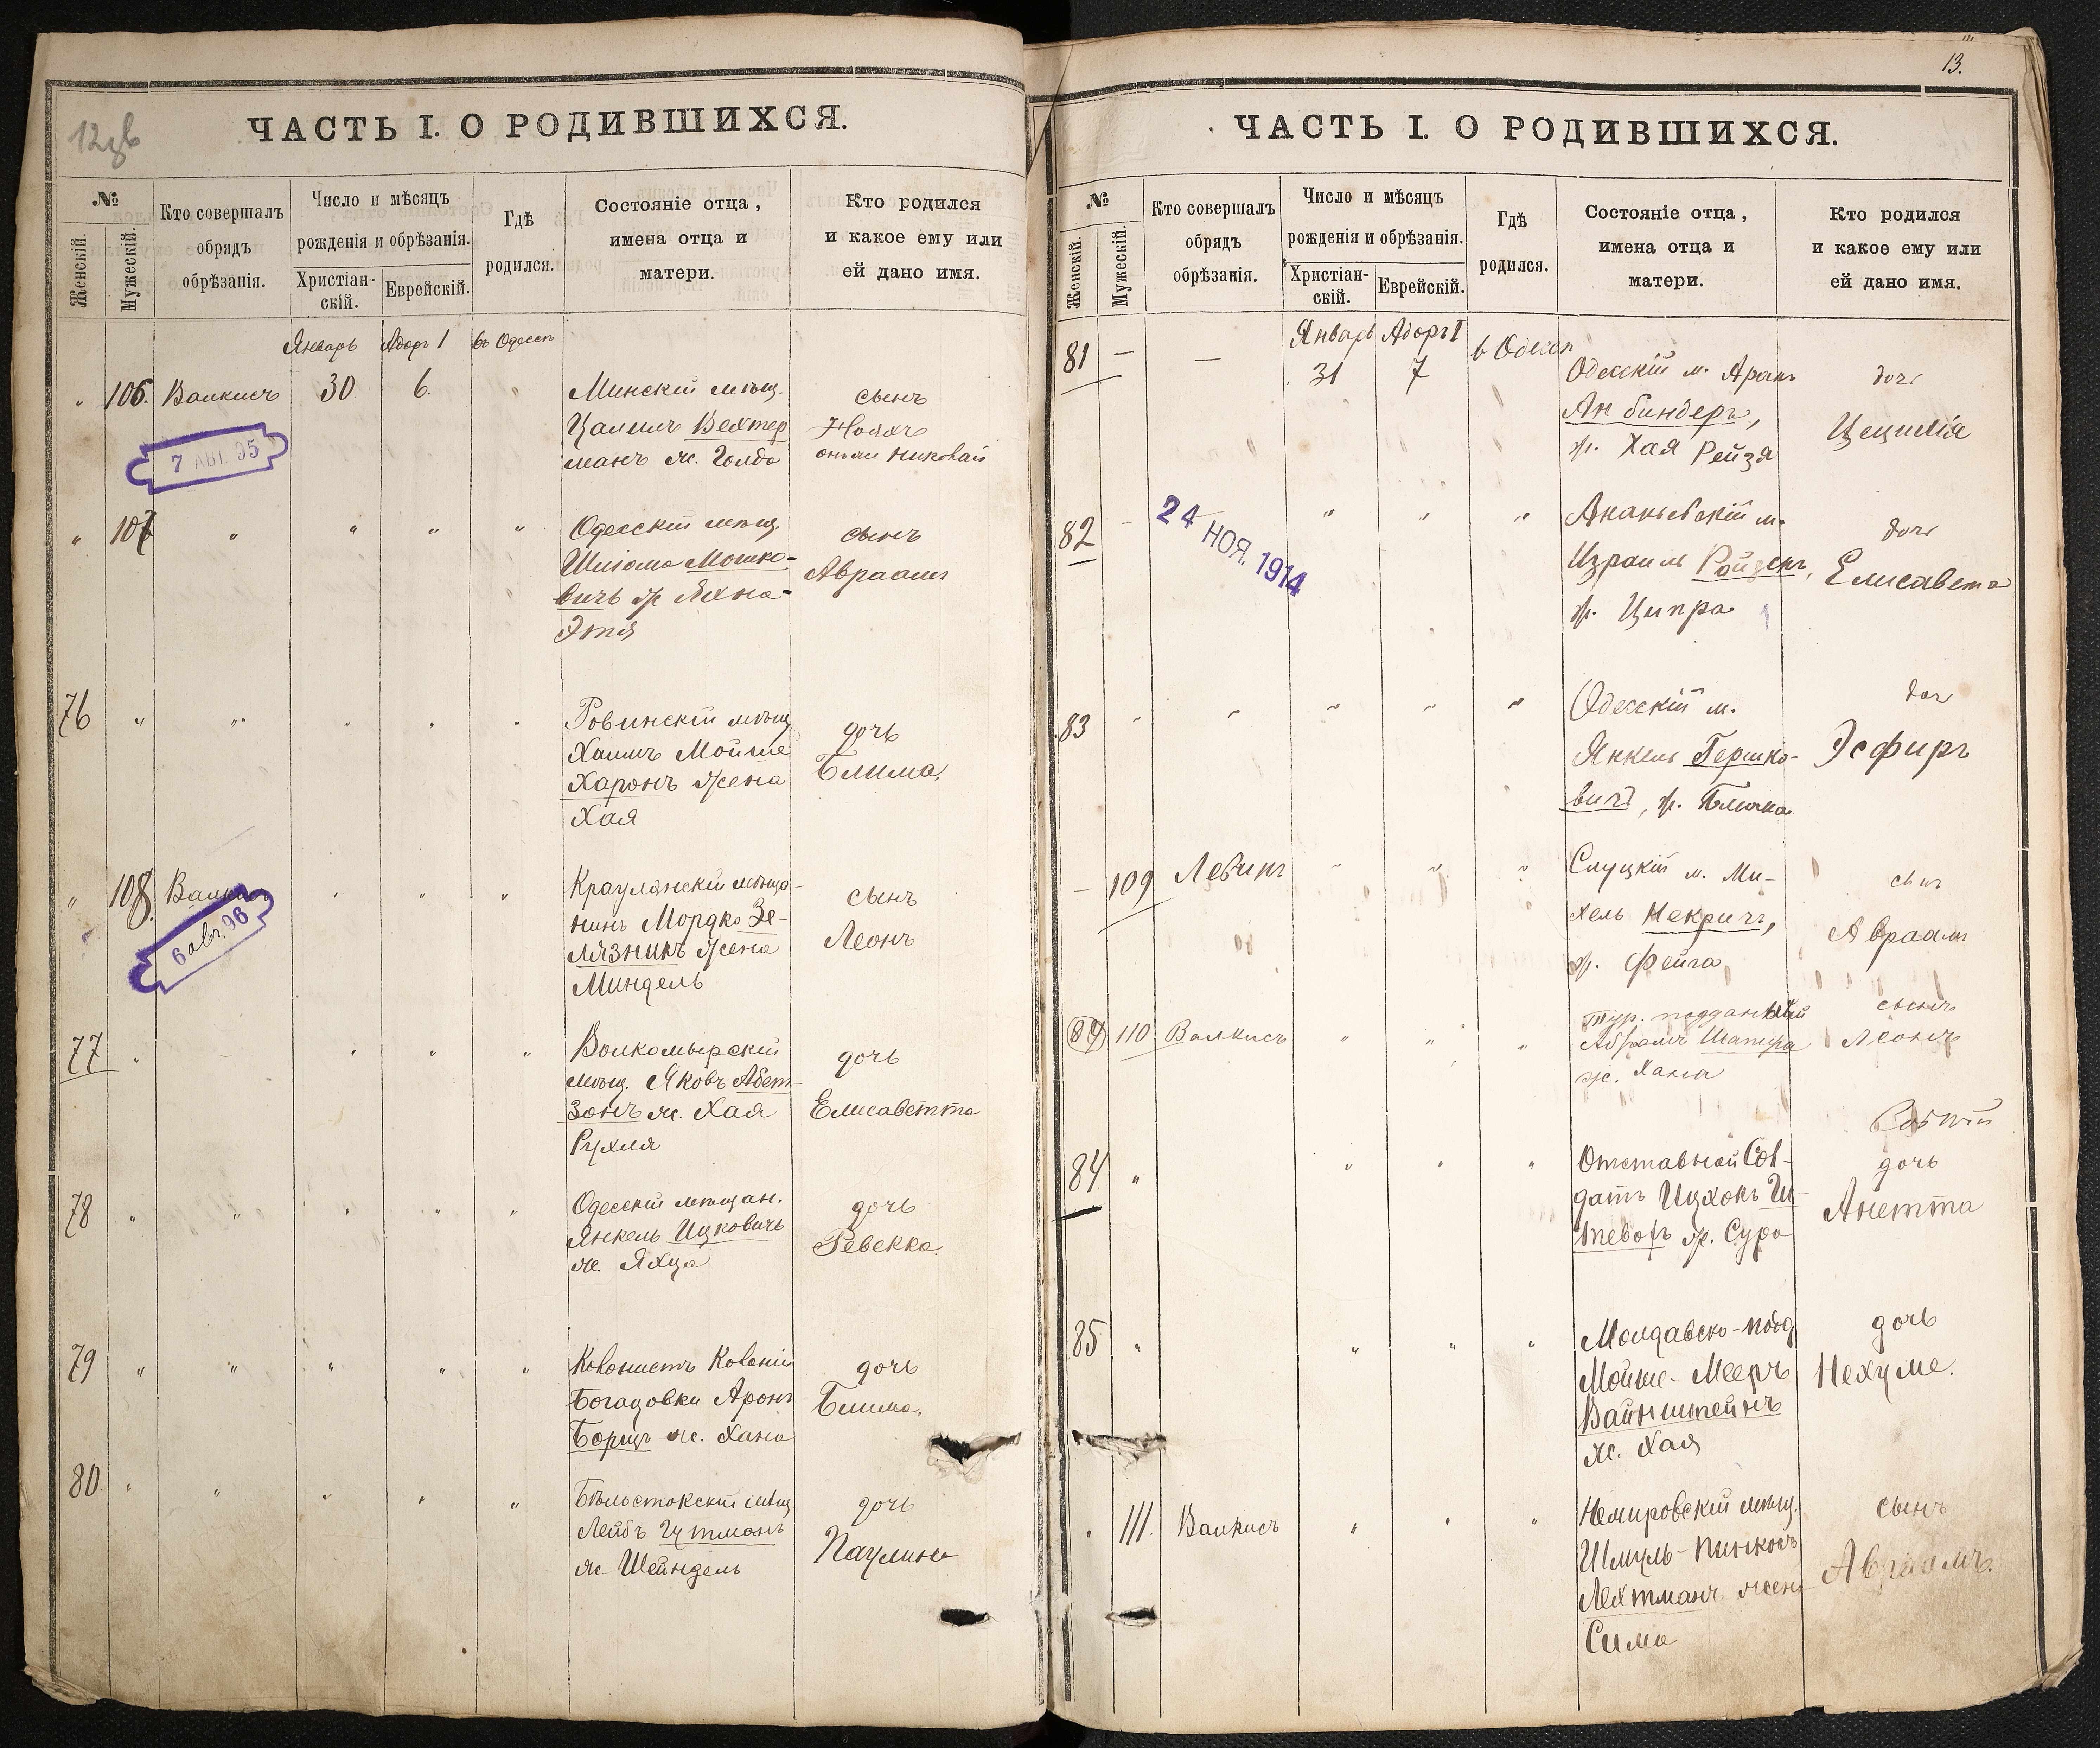 12 зв
ЧАСТЬ I. О РОДИВШИХСЯ.
№
Женскій.
Мужескій.
Кто совершалъ
обрядъ
обрѣзанія.
Число и мѣсяцъ
рожденія и обрѣзанія.
Христіан-
скій.
Еврейскій.
Гдѣ
родился.
Состояніе отца,
имена отца и
матери.
Кто родился
и какое ему или
ей дано имя.
Январь Адоръ 1 въ Одессѣ
" 106. Валкисъ 30 6.
Минскій мѣщ.
Цалилъ Вехтер
манъ ж. Голда
сынъ
Ноахъ
онъ же Николай
7 АВГ. 95
" 107 " " " "
Одесскій мѣщ
Шліома Мошко-
вичъ ж Яхна-
Этя
сынъ
Авраамъ
76 " " " " "
Ровинскій мѣщ
Хаимъ Мойше
Харонъ жена
Хая
дочь
Блима.
" 108. Валкисъ " " "
Мордко Зе-
млязникъ жена
Миндель
сынъ
Леонъ
6 авг. 96
77 " " " "
Волкомырскій
мѣщ. Яковъ Абет-
зонъ ж. Хая
Рухля
дочь
Елисаветта
78 " " " " "
Одесскій мѣщан.
Янкель Ицковичъ
ж. Яхца
дочь
Ревекка.
79 " " " " "
Колонистъ Колоніи
Богачовки Аронъ
Борщъ ж. Хана
дочь
Блима.
80. " " " " "
Бѣлостокскій мѣщ
Лейбъ Гутманъ
ж. Шейндель
дочь
Паулина
13.
ЧАСТЬ I. О РОДИВШИХСЯ.
№
Женскій.
Мужескій.
Кто совершалъ
обрядъ
обрѣзанія.
Число и мѣсяцъ
рожденія и обрѣзанія.
Христіан-
скій.
Еврейскій.
Гдѣ
родился.
Состояніе отца,
имена отца и
матери.
Кто родился
и какое ему или
ей дано имя.
Январь Адоръ I в Одессѣ
81 — — 31 7
Одесскій м. Аронъ
Ак биндеръ,
ж. Хая Рейзя
дочь
Цецилія
82 - " " "
Ананьевскій м.
Израиль Ройзенъ,
ж. Ципра
дочь
Елисавета
24 НОЯ. 1914
83 " " " " "
Одесскій м.
Янкель Гершко-
вичъ, ж. Блюма
дочь
Эсфирь
— 109 Левинъ " " "
Слуцкій м. Ми-
хель Некричъ,
ж. Фейга
сынъ
Авраам
84 110 Валкисъ " " "
Тур. подданный
Абрамъ Шапира
ж. Хана
сынъ
Леонъ
84 " " " "
Отставной Сол-
датъ Ицхокъ Ш-
ж. Сура
дочь
Анетта
85 " " " "
Молдавско-подд
Мойше-Мееръ
Вайнштейнъ
ж. Хая
дочь
Нехуме.
" 111. Валкисъ " " "
Немировскій мѣщ.
Шмуль-Пинкосъ
Лехтманъ жена
Сима
сынъ
Авраамъ.